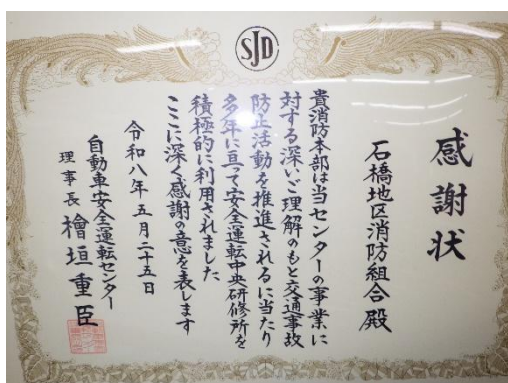 SJD
感謝状
石橋地区消防組合殿
貴消防本部は当センターの事業に
対する深いご理解のもと交通事故
防止活動を推進されるに当たり
多年に亘って安全運転中央研修所を
積極的に利用されました
ここに深く感謝の意を表します
令和八年五月二十五日
自動車安全運転センター
理事長 檜垣重臣